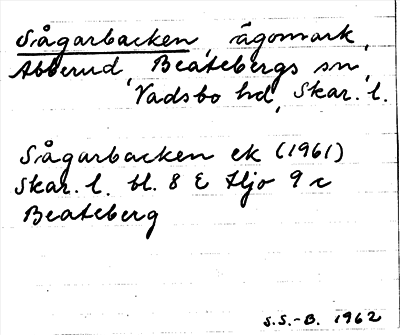 Sågarbacken, ägomark,
Abberud, Beatebergs sn,
Vadsbo hd, Skar. l.
Sågarbacken ek (1961)
Skar. l. bl. 8 E Hjo 9 c
Beateberg
S.S.-B. 1962